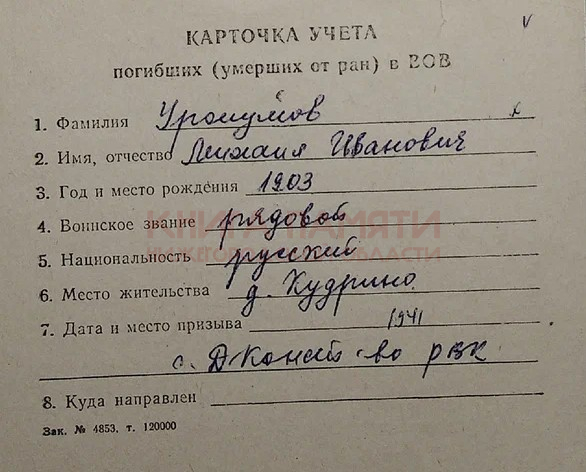 КАРТОЧКА УЧЕТА
погибших (умерших от ран) в ВОВ
1. Фамилия
2. Имя, отчество Михаил Иванович
3. Год и место рождения 1903
4. Воинское звание рядовой
5. Национальность русский
6. Место жительства д. Кудрино
7. Дата и место призыва 1941
с. Д Конст-во РВК
8. Куда направлен
Зак. № 4853. т. 120000
КНИГА ПАМЯТИ
НИЖЕГОРОДСКОЙ ОБЛАСТИ